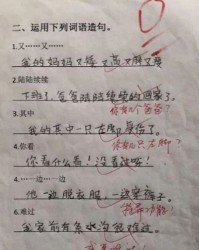 二、运用下列词语造句。
1.又……又……
我的妈妈又矮又高又胖又瘦
2.陆陆续续
下班了,爸爸陆陆续续的回家了。
你有几个爸爸?
3.其中
我的其中一只左脚受伤了。
你有几只左脚?
4.你看
你看什么看!没看过呀!
5.……一边……一边
他一边脱衣服,一边穿裤子。
6.难过
我家前有条水沟很难过。